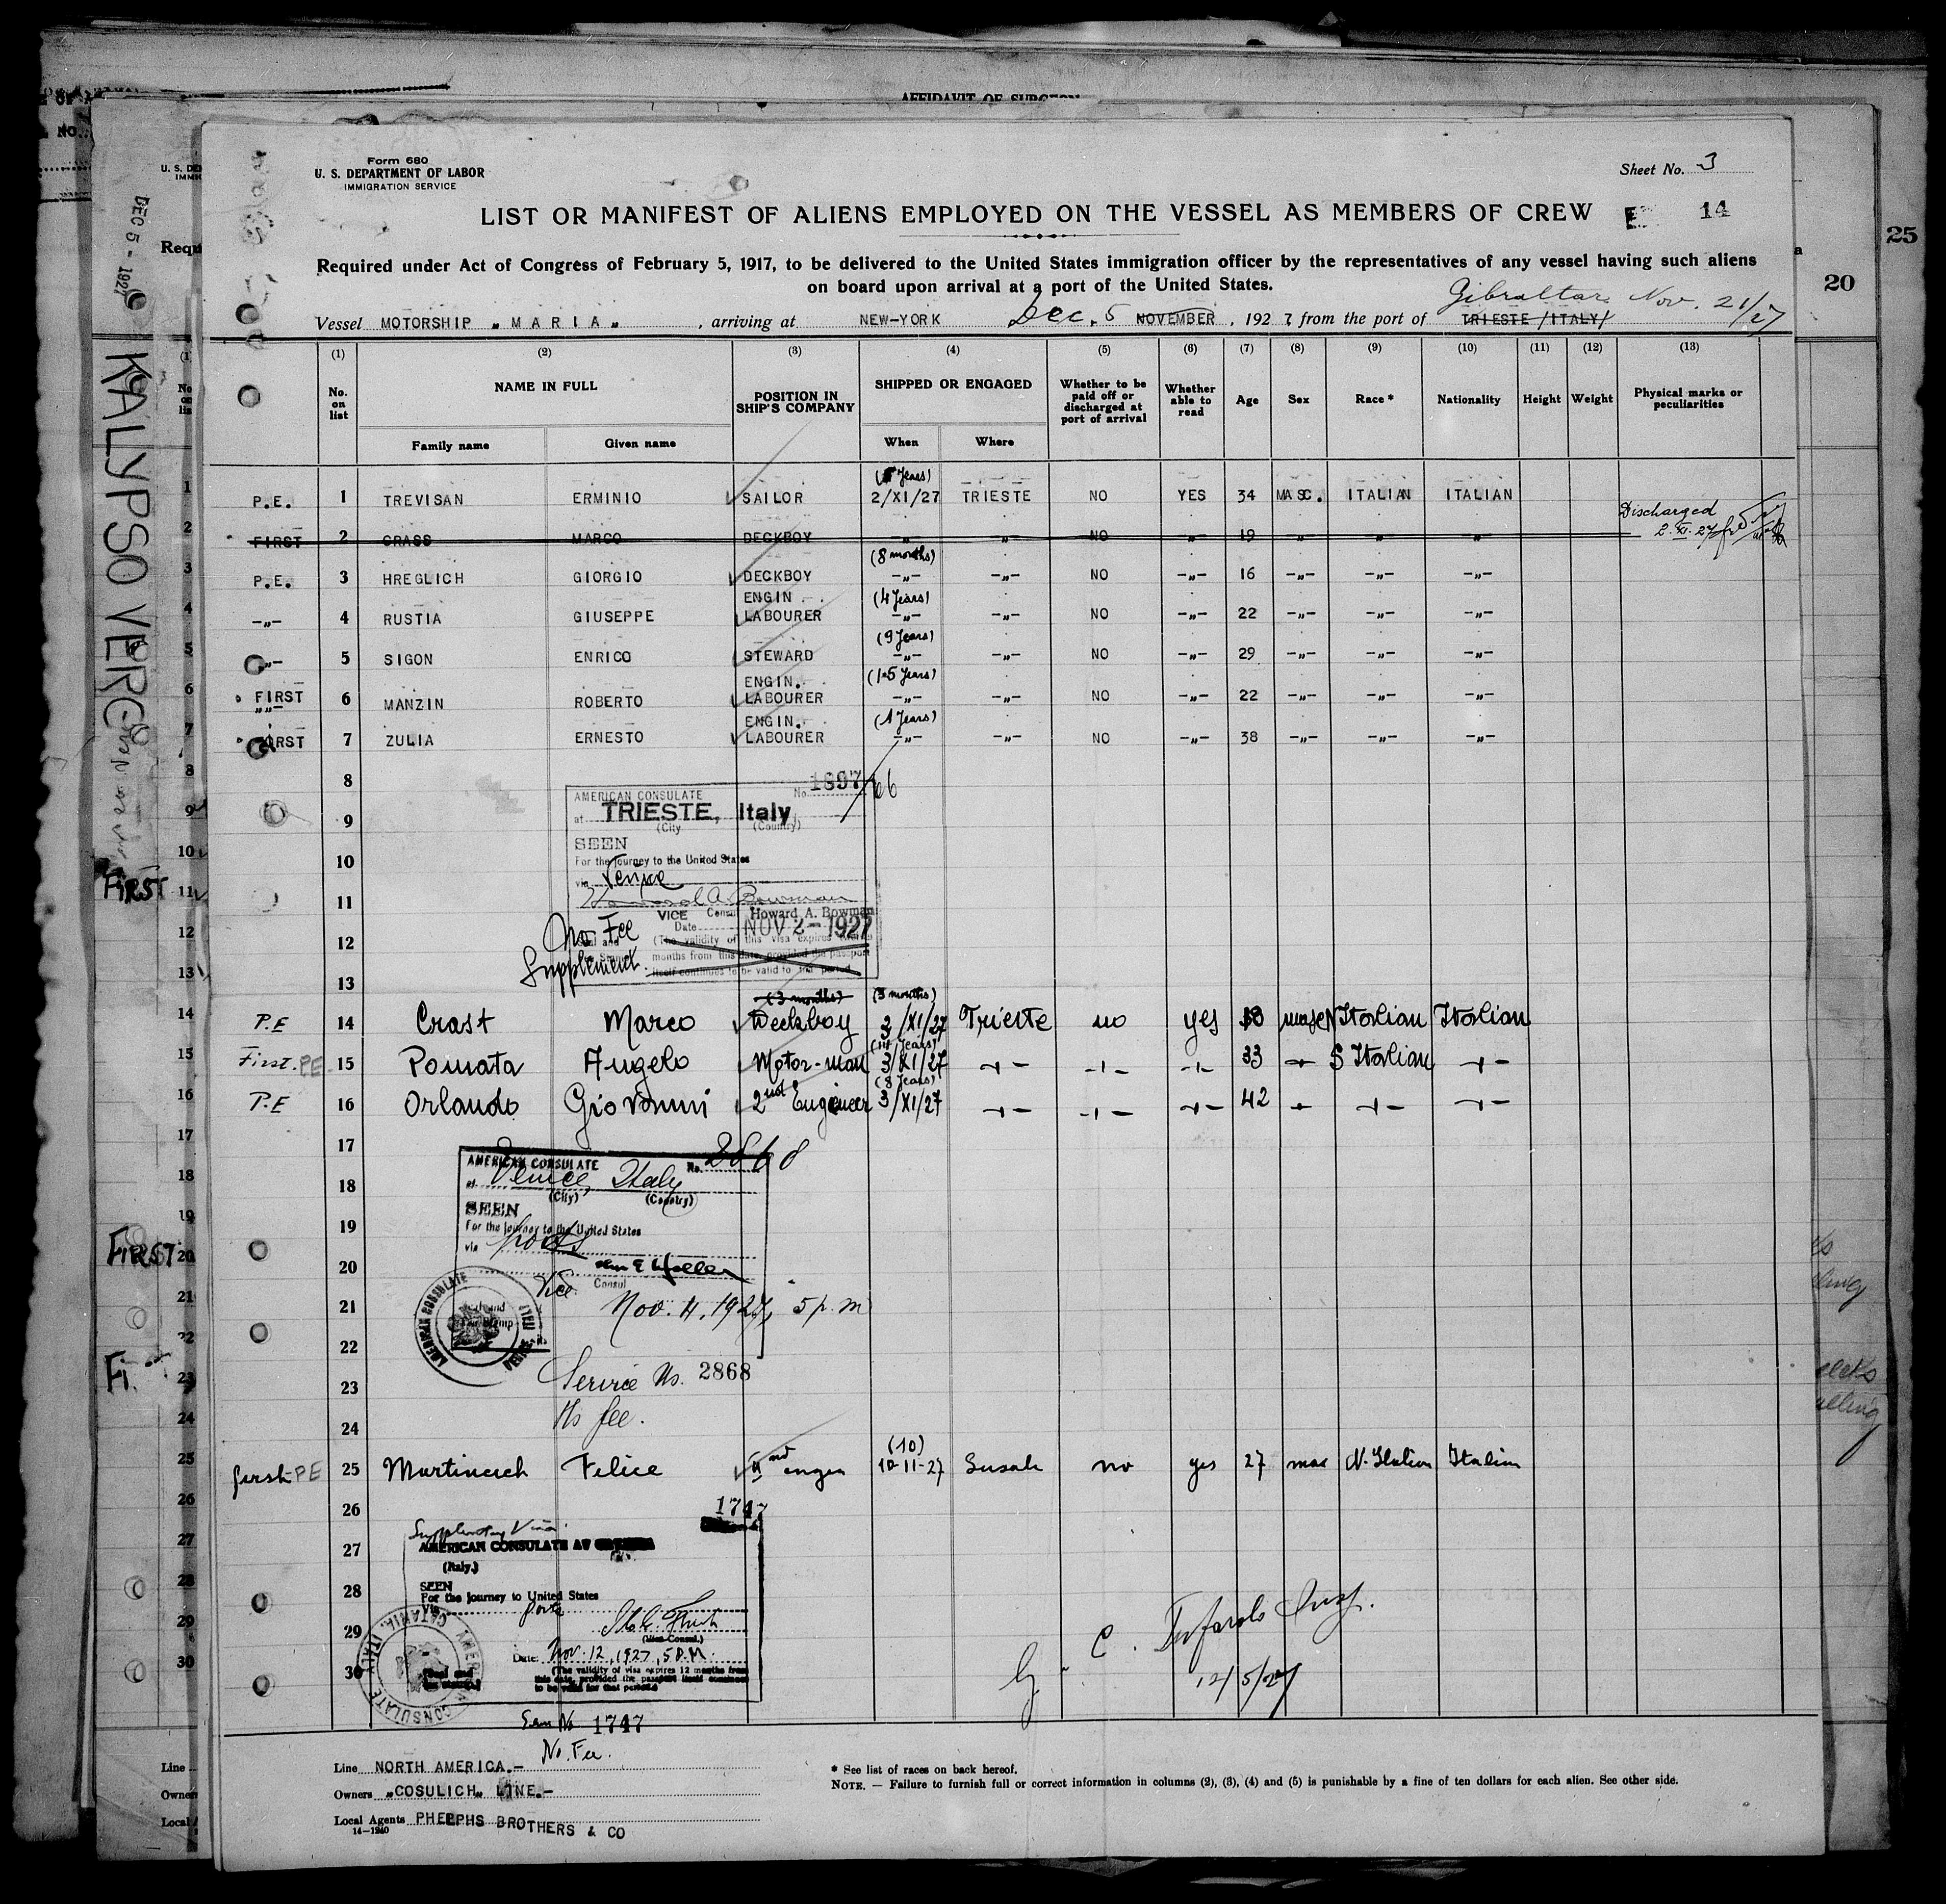 AFFIDAVIT OF SURGEON
Form 680
U. S. DEPARTMENT OF LABOR
IMMIGRATION SERVICE
Sheet No. 3
LIST OR MANIFEST OF ALIENS EMPLOYED ON THE VESSEL AS MEMBERS OF CREW
14
25
20
DEC 5 - 1927
KALYPSO VERG
Required under Act of Congress of February 5, 1917, to be delivered to the United States immigration officer by the representatives of any vessel having such aliens
on board upon arrival at a port of the United States.
Gibraltar, Nov. 21/27
Vessel MOTORSHIP „MARIA„ , arriving at NEW-YORK Dec. 5 NOVEMBER , 1927 from the port of TRIESTE /ITALY/
(1) (2) (3) (4) (5) (6) (7) (8) (9) (10) (11) (12) (13)
No. on list NAME IN FULL POSITION IN SHIP'S COMPANY SHIPPED OR ENGAGED Whether to be paid off or discharged at port of arrival Whether able to read Age Sex Race * Nationality Height Weight Physical marks or peculiarities
Family name Given name When Where
(5 Years)
P.E. 1 TREVISAN ERMINIO SAILOR 2/XI/27 TRIESTE NO YES 34 MASC. ITALIAN ITALIAN
Discharged
FIRST 2 CRASS MARCO DECKBOY —„— —„— NO 19 „ „ „ 2. XI. 27
(8 months)
P.E. 3 HREGLICH GIORGIO DECKBOY —„— —„— NO —„— 16 —„— —„— —„—
ENGIN. (4 Years)
—„— 4 RUSTIA GIUSEPPE LABOURER —„— —„— NO —„— 22 —„— —„— —„—
(9 Years)
—„— 5 SIGON ENRICO STEWARD —„— —„— NO —„— 29 —„— —„— —„—
ENGIN. (1.5 Years)
FIRST 6 MANZIN ROBERTO LABOURER —„— —„— NO —„— 22 —„— —„— —„—
ENGIN. (1 Years)
FIRST 7 ZULIA ERNESTO LABOURER —„— —„— NO —„— 38 —„— —„— —„—
8
AMERICAN CONSULATE No. 1897/66
at TRIESTE, Italy
9
(City) (Country)
SEEN
10
For the journey to the United States
via Venice
11
Howard A. Bowman
VICE Consul Howard A. Bowman
No Fee Date NOV 2 - 1927
12
(The validity of this visa expires
months from this date, provided the passport
Supplement.
itself continues to be valid for that period.)
13
(3 months) (3 months)
P.E 14 Crast Marco Deckboy 3/XI/27 Trieste no yes 18 masc N Italian Italian
(11 Years)
First. PE 15 Pomata Angelo Motor-man 3/XI/27 33 S Italian
(8 Years)
P.E 16 Orlando Giovanni 2nd Engineer 3/XI/27 42
17
AMERICAN CONSULATE No. 2868
18
at Venice, Italy
(City) (Country)
SEEN
19
For the journey to the United States
via ports
20
Vice Consul
21
Nov. 11, 1927, 5 p.m
AMERICAN CONSULATE VENICE ITALY
22
Service No. 2868
23
No fee.
24
(10)
first PE 25 Martinech Felice II nd engin 10-11-27 Susak no yes 27 mas N. Italian Italian
26
1747
Supplementary Visa
27
AMERICAN CONSULATE AT
(Italy.)
28
SEEN
For the journey to United States
Via ports
29
(Vice-Consul.)
Date: Nov. 12, 1927, 5 P.M.
30
(The validity of visa expires 12 months from
this date, provided the passport itself continues
to be valid for that period.)
AMERICAN CONSULATE CATANIA, ITALY
Insp.
12/5/27
Serv No 1747
No. Fee.
Line NORTH AMERICA.—
Owners „COSULICH„ LINE.—
Local Agents PHELPHS BROTHERS & CO
14—1240
* See list of races on back hereof.
NOTE. — Failure to furnish full or correct information in columns (2), (3), (4) and (5) is punishable by a fine of ten dollars for each alien. See other side.